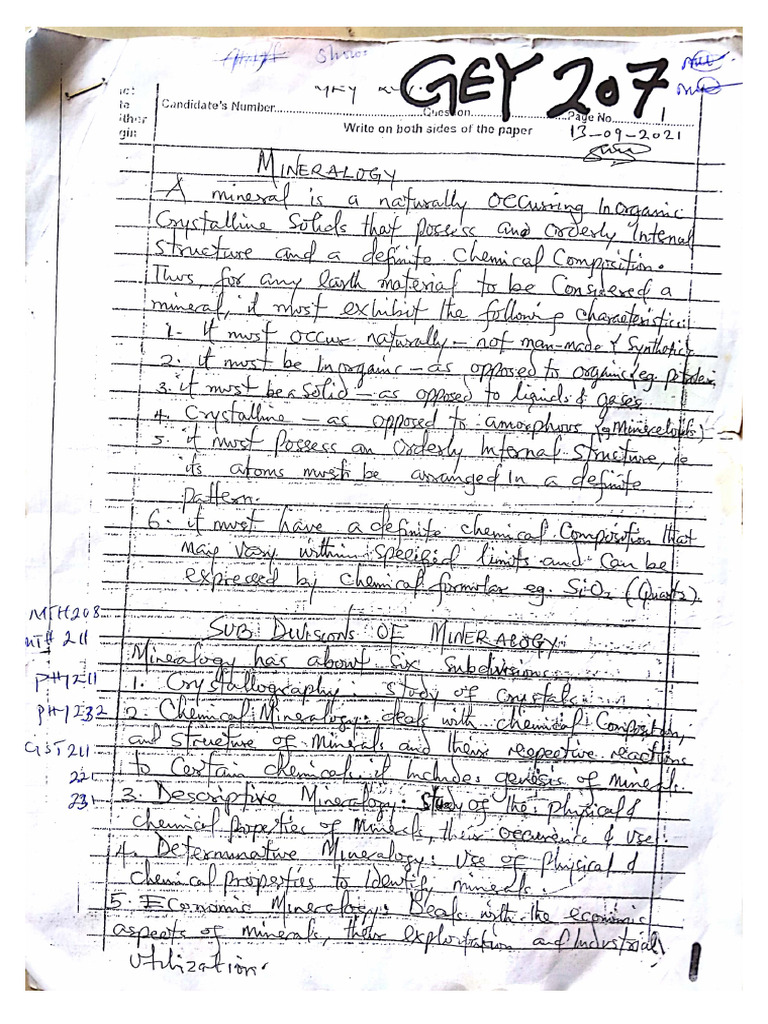 GEY 207
Candidate's Number
Question
Page No. 1
Write on both sides of the paper
13-09-2021
MINERALOGY
A mineral is a naturally occurring Inorganic
Crystalline Solids that possess and orderly Internal
Structure and a definite Chemical Composition.
Thus, for any Earth material to be Considered a
mineral, it must exhibit the following characteristics:
1. it must occur naturally – not man-made & Synthetic
2. it must be Inorganic – as opposed to organic eg.
3. it must be a Solid – as opposed to liquids & gases
4. Crystalline – as opposed to amorphous (eg Mineraloids)
5. it must Possess an Orderly Internal Structure, ie
its atoms must be arranged in a definite
pattern.
6. it must have a definite chemical Composition that
may vary within specified limits and can be
expressed by chemical formular eg. SiO2 (Quartz).
MTH 208
MTH 211
PHY 211
PHY 232
GST 211
221
231
SUB DIVISIONS OF MINERALOGY
Mineralogy has about six subdivisions
1. Crystallography: Study of crystals.
2. Chemical Mineralogy: deals with chemical Composition,
and structure of Minerals and their respective reactions
to Certain chemicals. it Includes genesis of Minerals.
3. Descriptive Mineralogy: Study of the physical &
chemical properties of Minerals, their occurence & use.
4. Determinative Mineralogy: Use of Physical &
chemical properties to Identify minerals.
5. Economic Mineralogy: Deals with the economic
aspects of minerals, their exploitation and Industrial
Utilization.
1